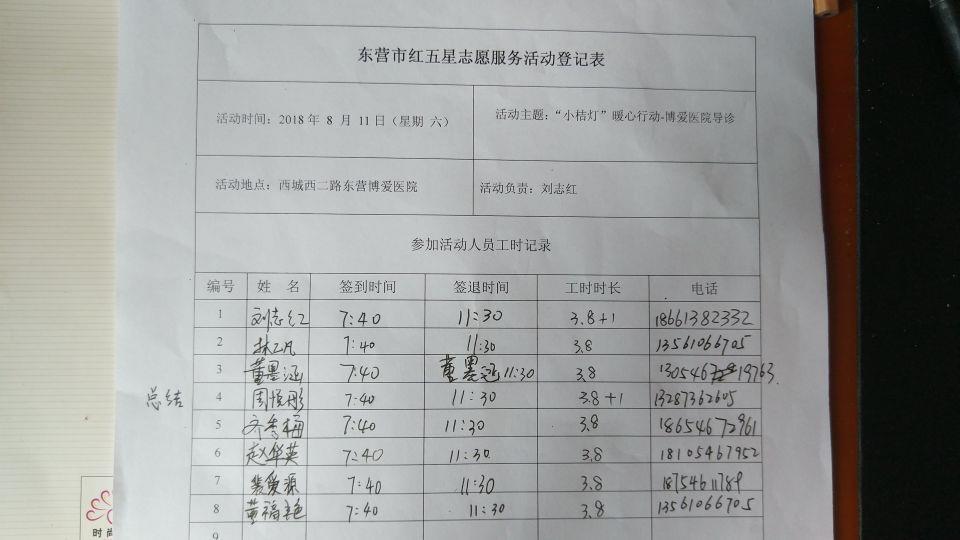 东营市红五星志愿服务活动登记表
活动时间：2018年 8 月 11日（星期 六）
活动主题：“小桔灯”暖心行动-博爱医院导诊
活动地点：西城西二路东营博爱医院
活动负责：刘志红
参加活动人员工时记录
编号 姓 名 签到时间 签退时间 工时时长 电话
1 刘志红 7:40 11:30 3.8+1 18661382332
2 7:40 11:30 3.8 13561066705
3 董墨涵 7:40 董墨涵 11:30 3.8 19763
总结
4 周悦彤 7:40 11:30 3.8+1 13287362605
5 齐秀梅 7:40 11:30 3.8 18654672961
6 赵华英 7:40 11:30 3.8 18105467952
7 裴爱源 7:40 11:30 3.8 18754611789
8 董福艳 7:40 11:30 3.8 13561066705
9
时尚